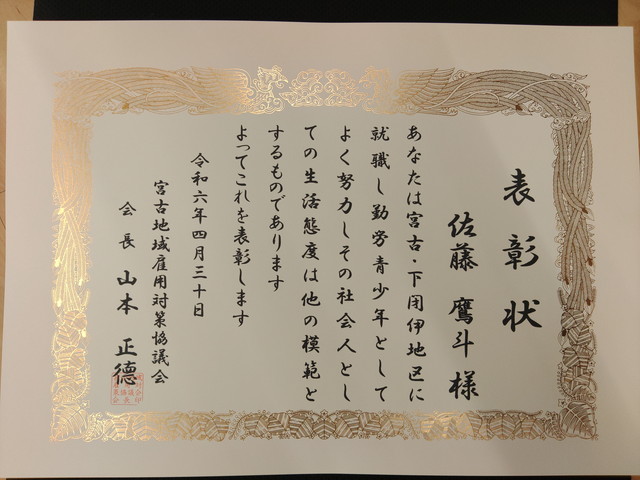 表彰状
佐藤 鷹斗 様
あなたは宮古・下閉伊地区に
就職し勤労青少年として
よく努力しその社会人とし
ての生活態度は他の模範と
するものであります
よってこれを表彰します
令和六年四月三十日
宮古地域雇用対策協議会
会長 山本 正德